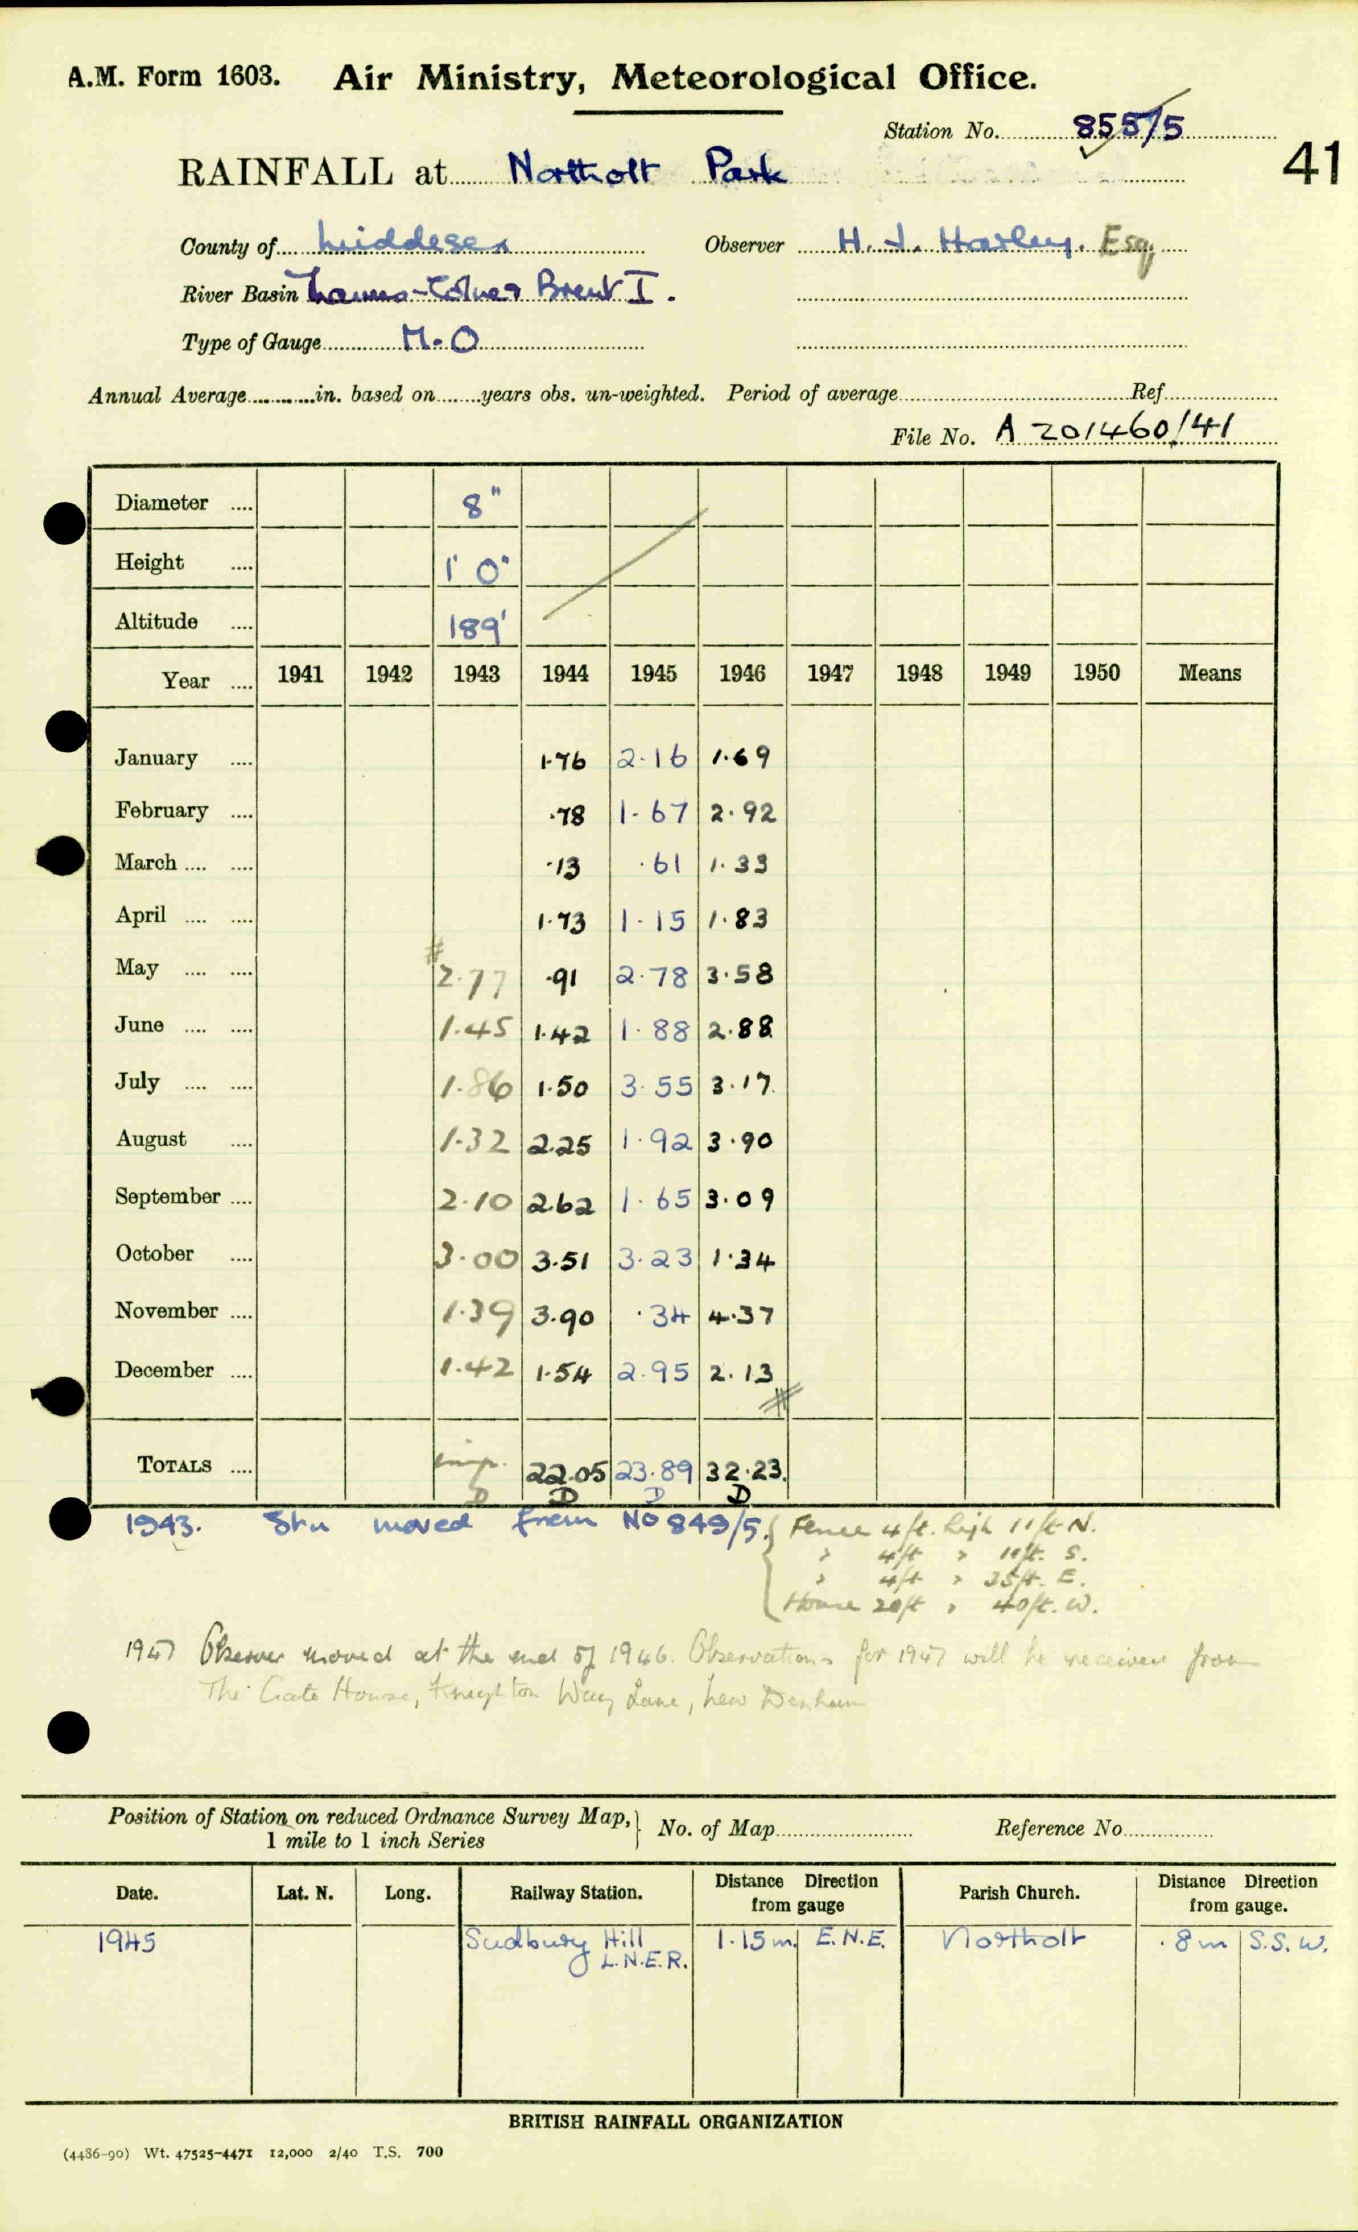 A.M. Form 1603. Air Ministry, Meteorological Office.
Station No. 855/5
41
RAINFALL at Northolt Park
County of Middlesex Observer H. J. Harley. Esq
River Basin Thames-Colne & Brent I.
Type of Gauge M.O
Annual Average in. based on years obs. un-weighted. Period of average Ref.
File No. A 201460/41
Diameter 8"
Height 1' 0"
Altitude 189'
Year 1941 1942 1943 1944 1945 1946 1947 1948 1949 1950 Means
January 1.76 2.16 1.69
February .78 1.67 2.92
March .13 .61 1.33
April 1.73 1.15 1.83
May # 2.77 .91 2.78 3.58
June 1.45 1.42 1.88 2.88
July 1.86 1.50 3.55 3.17
August 1.32 2.25 1.92 3.90
September 2.10 2.62 1.65 3.09
October 3.00 3.51 3.23 1.34
November 1.39 3.90 .34 4.37
December 1.42 1.54 2.95 2.13
TOTALS imp. 22.05 23.89 32.23
D D D D
1943. Stn moved from No 849/5. Fence 4ft. high 11ft N.
" 4ft " 11ft. S.
" 4ft " 35ft. E.
House 20ft " 40ft. W.
1947 Observer moved at the end of 1946. Observations for 1947 will be received from
The Gate House, Knighton Way Lane, New Denham
Position of Station on reduced Ordnance Survey Map, No. of Map Reference No.
1 mile to 1 inch Series
Date. Lat. N. Long. Railway Station. Distance Direction from gauge Parish Church. Distance Direction from gauge.
1945 Sudbury Hill L.N.E.R. 1.15m E.N.E. Northolt .8m S.S.W.
BRITISH RAINFALL ORGANIZATION
(4486-90) Wt. 47525-4471 12,000 2/40 T.S. 700